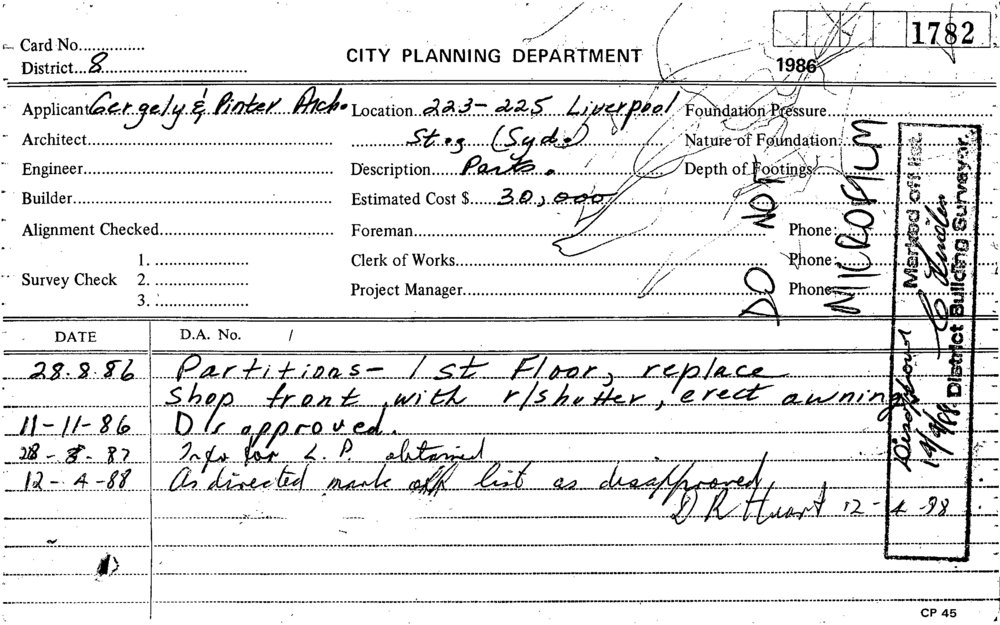 1782
1986
Card No.
District 8
CITY PLANNING DEPARTMENT
Applicant Gergely & Pinter Arch. Location 223-225 Liverpool Foundation Pressure
Architect St. (Syd.) Nature of Foundation
Engineer Description Parts. Depth of Footings
Builder Estimated Cost $ 30,000
Alignment Checked Foreman Phone:
1. Clerk of Works Phone:
Survey Check 2.
3. Project Manager Phone
DO NOT
MICROFILM
Marked off list.
District Building Surveyor.
DATE D.A. No. /
28.8.86 Partitions- 1st Floor, replace
Shop front with r/shutter, erect awning
11-11-86 approved.
Info for L.P. obtained
12-4-88 As directed mark off list as disapproved
12-4-88
CP 45